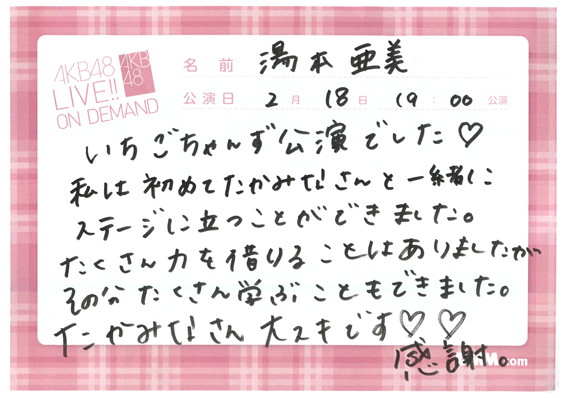 AKB48
LIVE!!
ON DEMAND
AKB
48
名前 湯本亜美
公演日 2月18日 19:00公演
いちごちゃんず公演でした♡
私は初めてたかみなさんと一緒に
ステージに立つことができました。
たくさん力を借りることはありましたが
その分たくさん学ぶこともできました。
たかみなさん大スキです♡♡
感謝。
.com